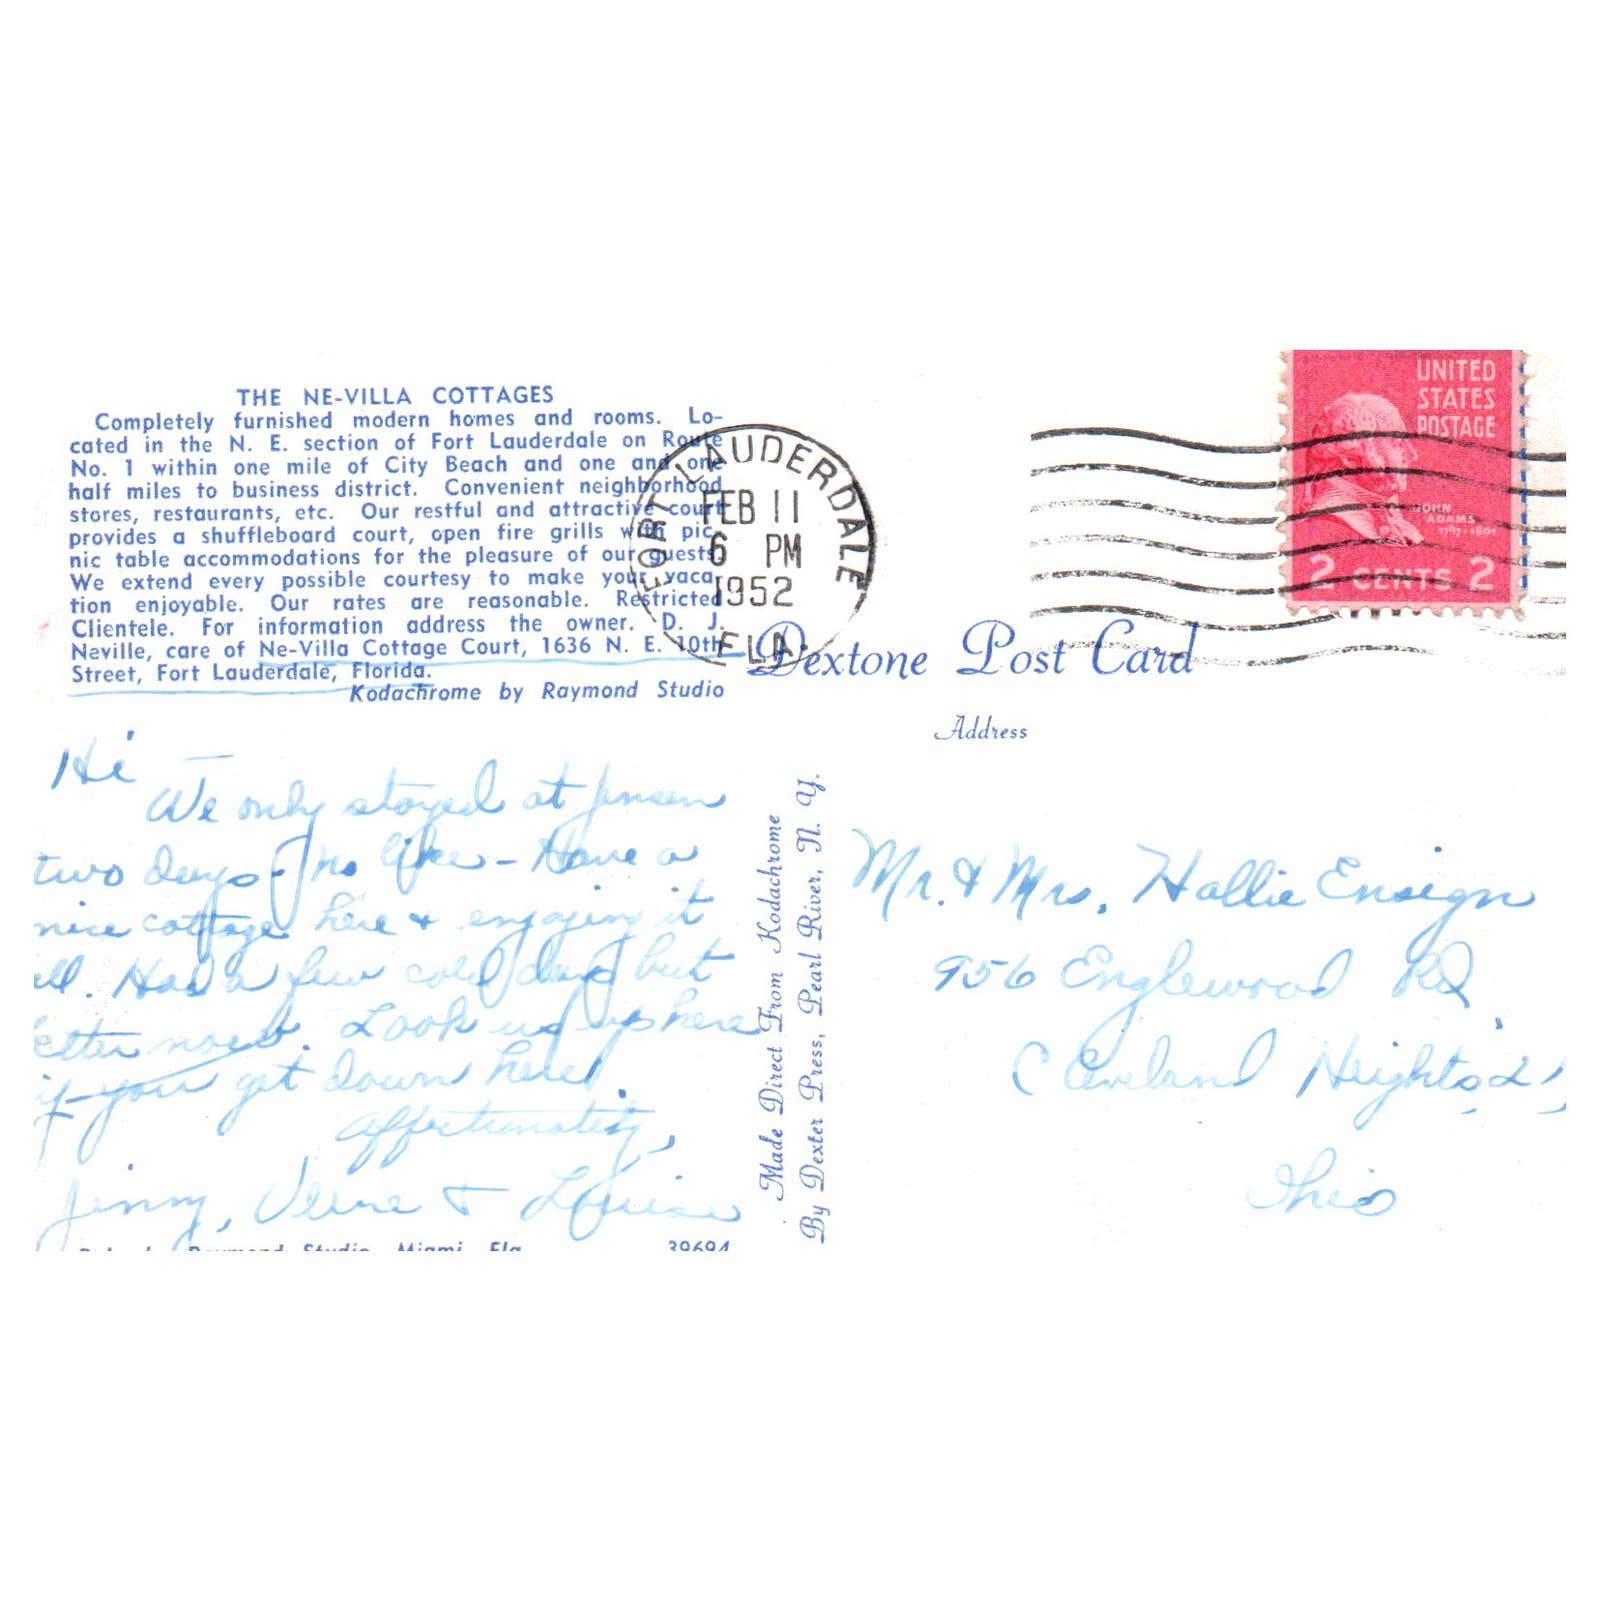 THE NE-VILLA COTTAGES
Completely furnished modern homes and rooms. Lo-
cated in the N. E. section of Fort Lauderdale on Route
No. 1 within one mile of City Beach and one and one
half miles to business district. Convenient neighborhood
stores, restaurants, etc. Our restful and attractive court
provides a shuffleboard court, open fire grills with pic-
nic table accommodations for the pleasure of our guests.
We extend every possible courtesy to make your vaca-
tion enjoyable. Our rates are reasonable. Restricted
Clientele. For information address the owner. D. J.
Neville, care of Ne-Villa Cottage Court, 1636 N. E. 10th
Street, Fort Lauderdale, Florida.
Kodachrome by Raymond Studio
FORT LAUDERDALE
FEB 11
6 PM
1952
FLA.
UNITED
STATES
POSTAGE
JOHN
ADAMS
1797-1801
2 CENTS 2
Dextone Post Card
Address
Hi
We only stayed at Jensen
two days - no like - Have a
nice cottage here & enjoying it
Had a few cold days but
now. Look us up here
if you get down here.
Affectionately,
Jinny, & Louise
Raymond Studio, Miami, Fla.
39694
Made Direct From Kodachrome
By Dexter Press, Pearl River, N. Y.
Mr. & Mrs. Hallie Ensign
956 Englewood Rd
Cleveland Heights, 21,
Ohio